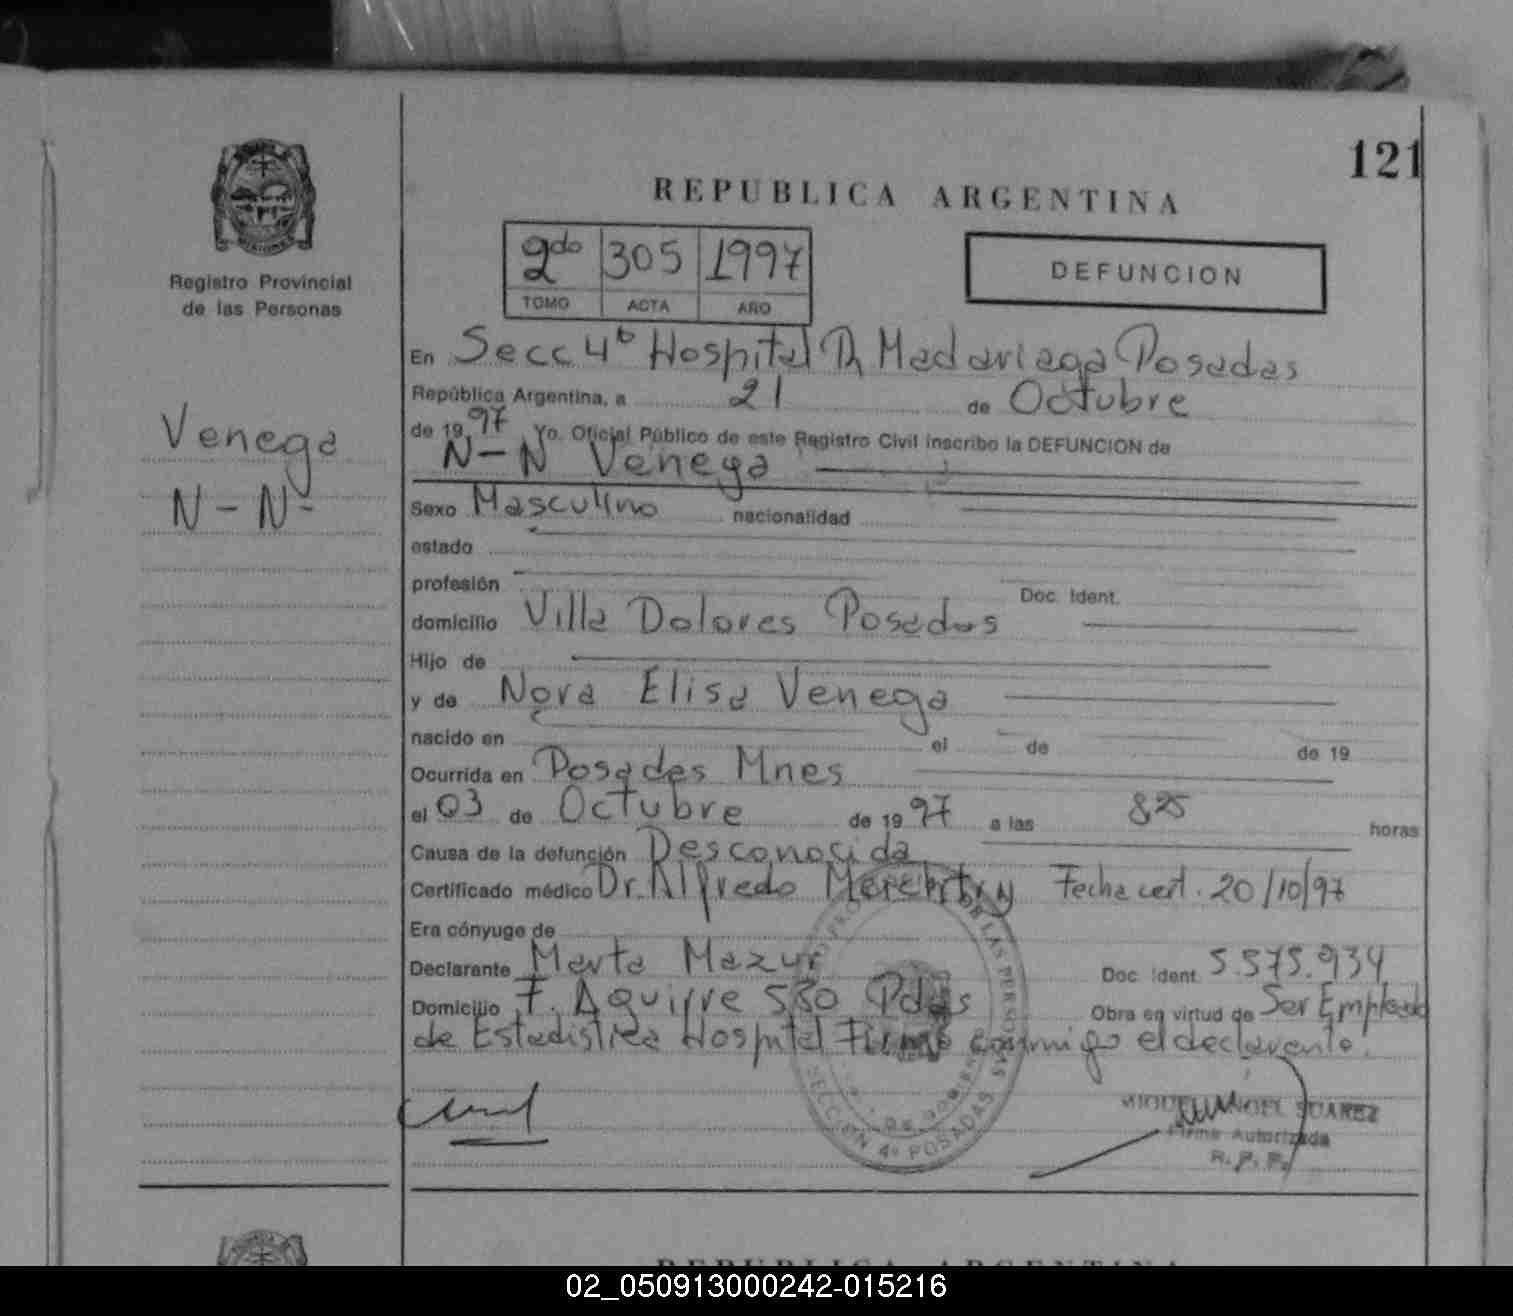 121
REPUBLICA ARGENTINA
2do 305 1997
TOMO ACTA AÑO
DEFUNCION
MISIONES
Registro Provincial
de las Personas
Venega
N-N-
En Secc 4º Hospital Dr Madariaga Posadas
República Argentina, a 21 de Octubre
de 1997 Yo. Oficial Público de este Registro Civil inscribo la DEFUNCION de
N-N Venega
Sexo Masculino nacionalidad
estado
profesión Doc. Ident.
domicilio Villa Dolores Posadas
Hijo de
y de Nora Elisa Venega
nacido en el de de 19
Ocurrida en Posadas Mnes
el 03 de Octubre de 1997 a las 825 horas
Causa de la defunción Desconocida
Certificado médico Dr. Alfredo Fecha cert. 20/10/97
Era cónyuge de
Declarante Marta Mazur Doc. Ident. 5.575.934
Domicilio F. Aguirre 530 Pdas Obra en virtud de Ser Empleado
de Estadistica Hospital Firma conmigo el declarante.
SECCION 4º POSADAS
MIGUEL ANGEL SUAREZ
Firma Autorizada
R. P. P.
REPUBLICA ARGENTINA
02_050913000242-015216